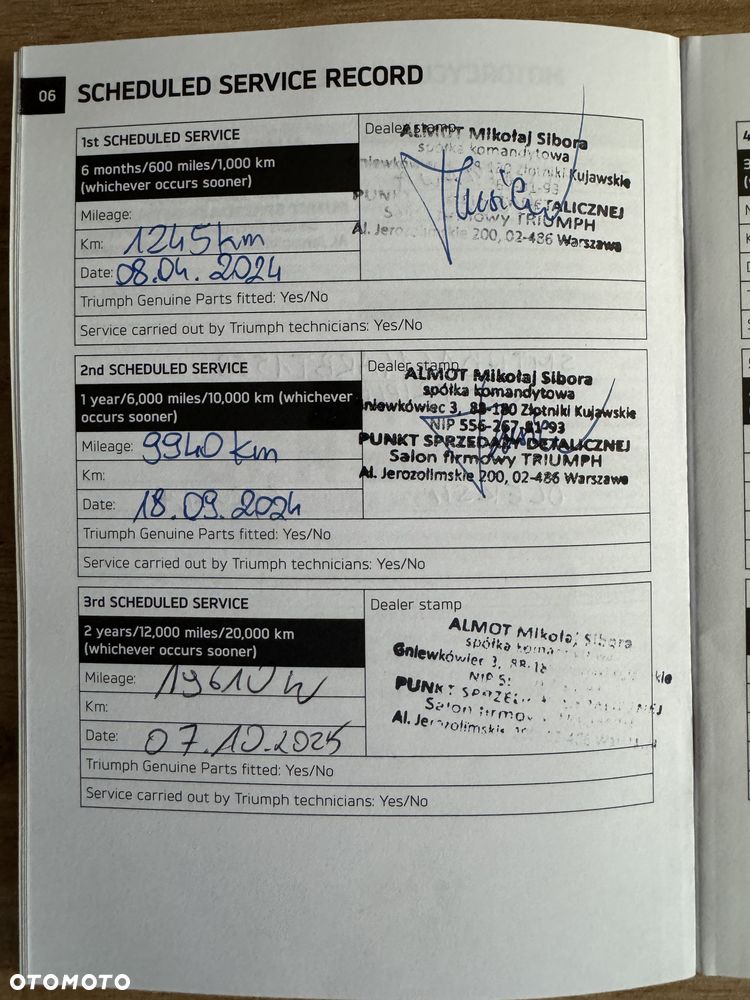 06 SCHEDULED SERVICE RECORD
1st SCHEDULED SERVICE
6 months/600 miles/1,000 km
(whichever occurs sooner)
Mileage:
Km: 1245 km
Date: 08.04.2024
Triumph Genuine Parts fitted: Yes/No
Service carried out by Triumph technicians: Yes/No
Dealer stamp
ALMOT Mikołaj Sibora
spółka komandytowa
Złotniki Kujawskie
DETALICZNEJ
firmowy TRIUMPH
Al. Jerozolimskie 200, 02-486 Warszawa
2nd SCHEDULED SERVICE
1 year/6,000 miles/10,000 km (whichever
occurs sooner)
Mileage: 9940 km
Km:
Date: 18.09.2024
Triumph Genuine Parts fitted: Yes/No
Service carried out by Triumph technicians: Yes/No
Dealer stamp
ALMOT Mikołaj Sibora
spółka komandytowa
Gniewkówiec 3, 88-180 Złotniki Kujawskie
NIP 556-267-81-93
PUNKT SPRZEDAŻY DETALICZNEJ
Salon firmowy TRIUMPH
Al. Jerozolimskie 200, 02-486 Warszawa
3rd SCHEDULED SERVICE
2 years/12,000 miles/20,000 km
(whichever occurs sooner)
Mileage: 19610
Km:
Date: 07.10.2025
Triumph Genuine Parts fitted: Yes/No
Service carried out by Triumph technicians: Yes/No
Dealer stamp
ALMOT Mikołaj Sibora
spółka
Gniewkówiec 3,
NIP
PUNKT
Salon
Al. Jerozolimskie
OTOMOTO